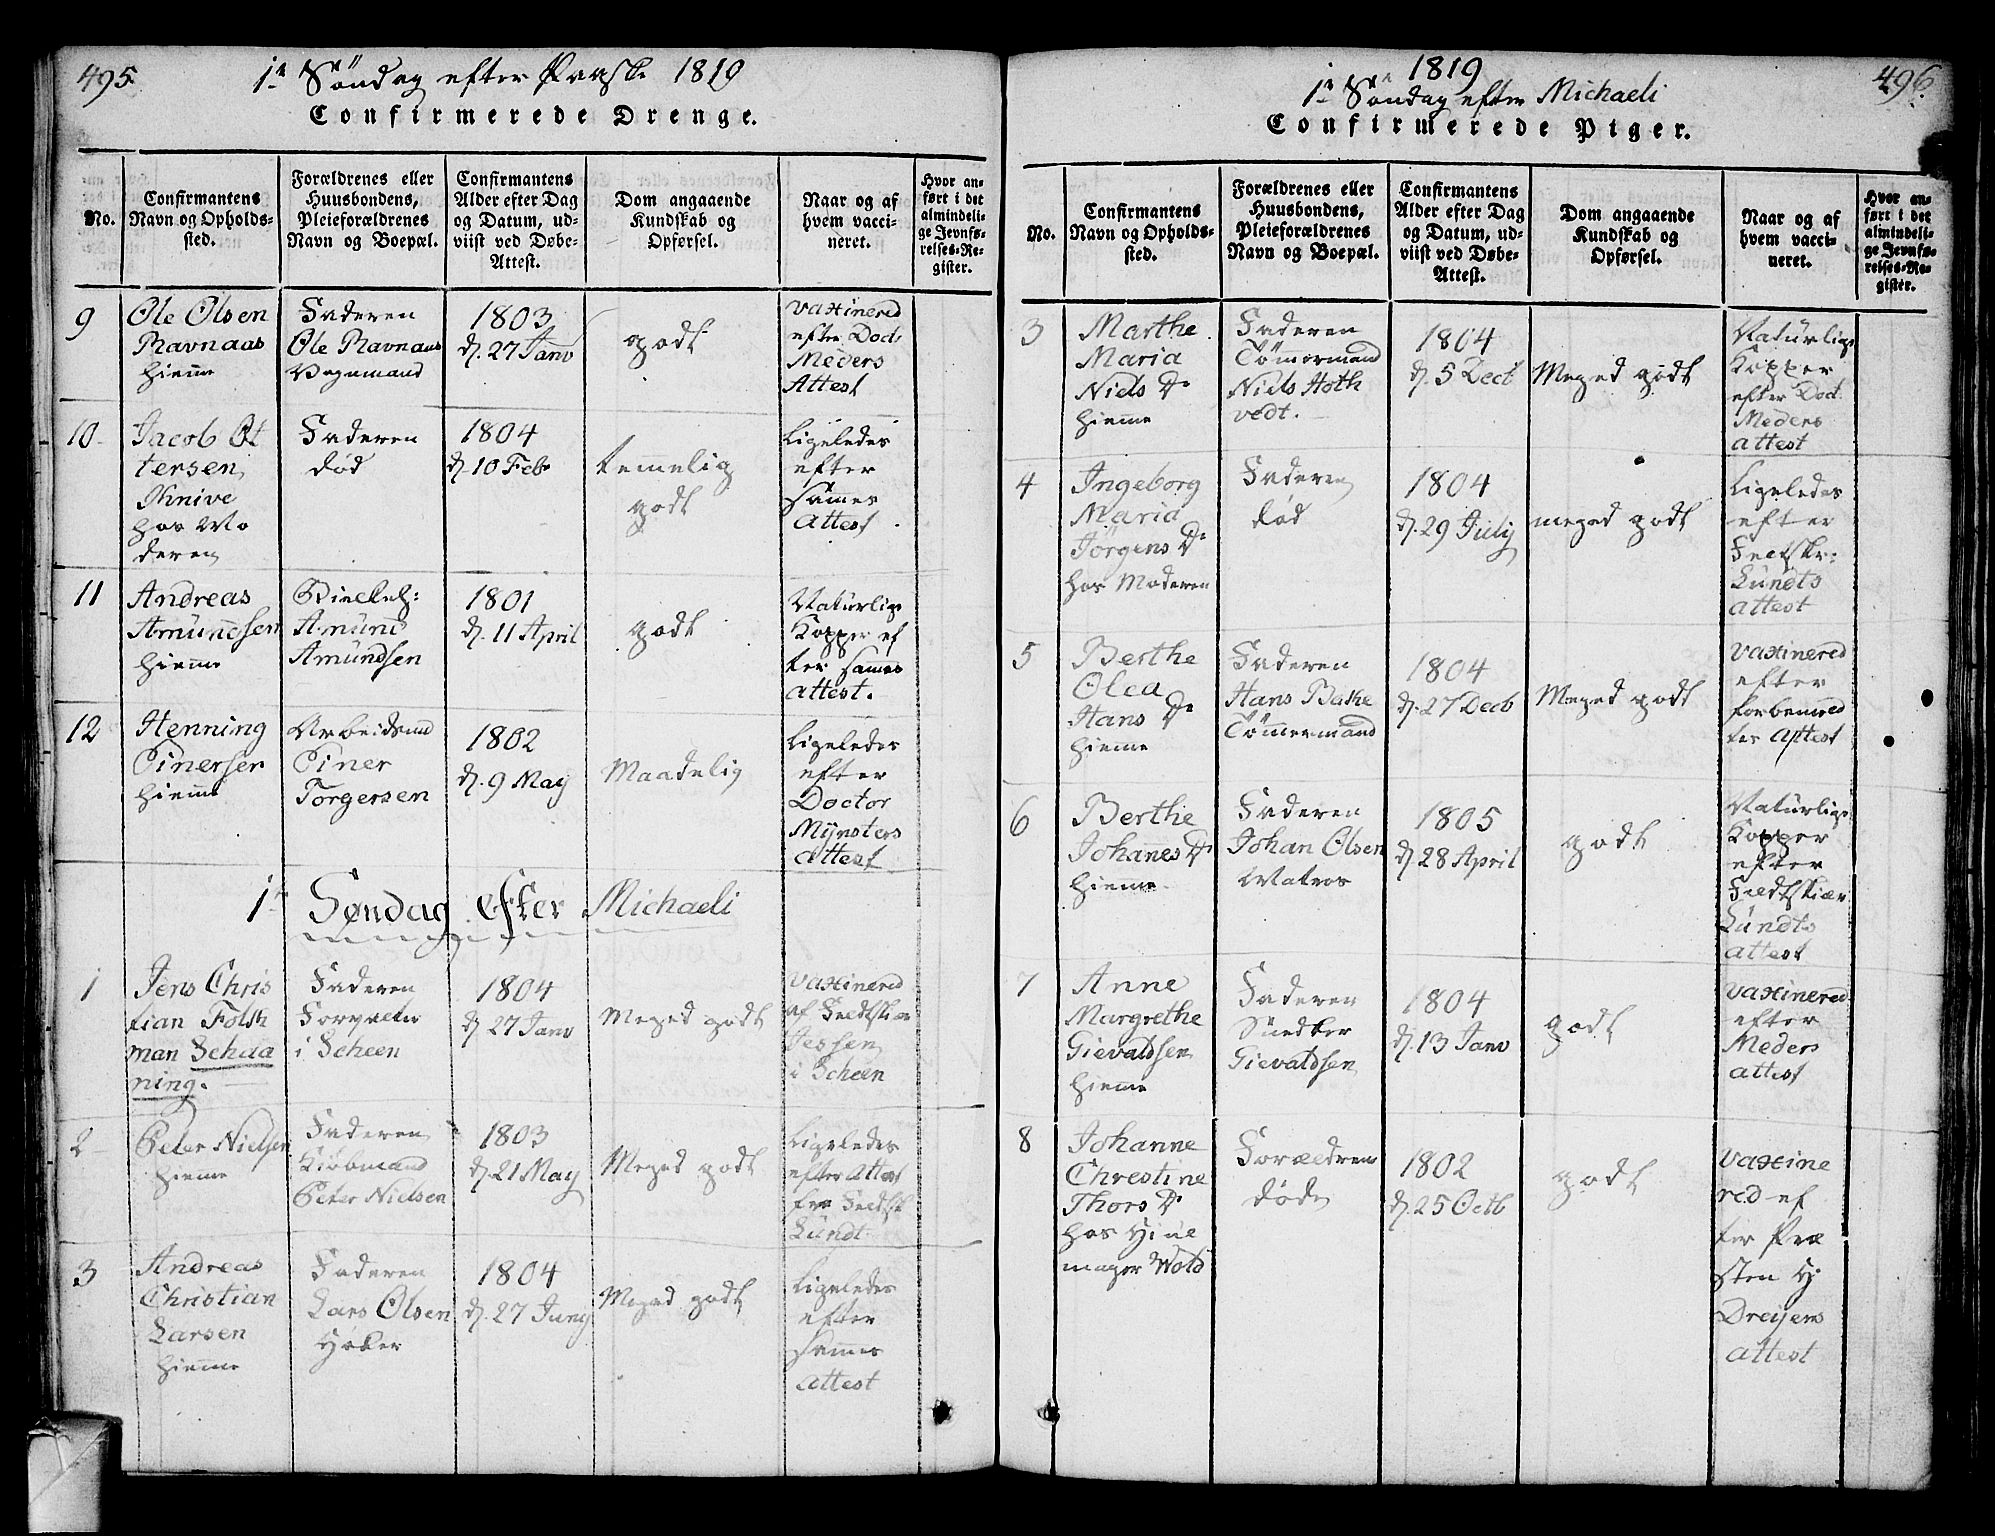 495.
1te Söndag efter Paaske 1819
Confirmerede Drenge.
No.
Confirmantens
Navn og Opholds-
sted.
Forældrenes eller
Huusbondens,
Pleieforældrenes
Navn og Boepæl.
Confirmantens
Alder efter Dag
og Datum, ud-
viist ved Døbe-
Attest.
Dom angaaende
Kundskab og
Opførsel.
Naar og af
hvem vacci-
neret.
Hvor an-
ført i det
almindeli-
ge Jevnfø-
relses-Re-
gister.
9
Ole Olsen
Ravnaas
hiemme
Faderen
Ole Ravnaas
Vognmand
1803
d. 27 Janv
godt
vaxinered
efter Doct
Meders
Attest
10
Jacob Ot
tersen
Knive
hos Mo
deren
Faderen
død
1804
d. 10 Feb
temmelig
godt
Ligeledes
efter
sammes
Attest.
11
Andreas
Amundsen
hiemme
Amund
Amundsen
1801
d. 11 April
godt
Naturlige
Kopper ef
ter sammes
attest.
12
Henning
Einersen
hiemme
Arbeidsmd
Einer
Torgersen
1802
d. 9 May
Maadelig
Ligeledes
efter
Doctor
Mynsters
attest
1te Søndag efter Michaeli
1
Jens Chris
tian Folsk
man Schaa
ning.
Faderen
Forvalter
i Scheen
1804
d 27 Janv
Meged godt
vaxinered
af Feldtskiær
Jessen
i Scheen
2
Peter Nielsen
hiemme
Faderen
Kiøbmand
Peter Nielsen
1803
d. 21 May
Meged godt
Ligeledes
efter Attest
fra Feldtsk
Lundt
3
Andreas
Christian
Larsen
hiemme
Faderen
Lars Olsen
Høker
1804
d. 27 Juny
Meged godt
Ligeledes
efter
sammes
attest
496.
1819
1te Søndag efter Michaeli
Confirmerede Piger.
No.
Confirmantens
Navn og Opholds-
sted.
Forældrenes eller
Huusbondens,
Pleieforældrenes
Navn og Boepæl.
Confirmantens
Alder efter Dag
og Datum, ud-
viist ved Døbe-
Attest.
Dom angaaende
Kundskab og
Opførsel.
Naar og af
hvem vacci-
neret.
Hvor an-
ført i det
almindeli-
ge Jevnfø-
relses-Re-
gister.
3
Marthe
Maria
Niels Dr
hiemme
Faderen
Tømermand
Niels Hoth
vedt.
1804
d. 5 Dect
Meged godt
Naturlige
Kopper
efter Doct.
Meders
attest
4
Ingeborg
Maria
Jørgens Dr
hos Moderen
Faderen
død
1804
d. 29 July
meged godt
Ligeledes
efter
Feltskr:
Lundts
attest
5
Berthe
Olea
Hans Dr
hiemme
Faderen
Hans Bakke
Tømermand
1804
d. 27 Decb
Meged godt
vaxinered
efter
forbemeld
tes Attest
6
Berthe
Johanes Dr
hiemme.
Faderen
Johan Olsen
Matros
1805
d 28 April
godt
Naturlige
Kopper
efter
Feldtskiær
Lundts
attest
7
Anne
Margrethe
Gievaldsen
hiemme
Faderen
Snedker
Gievaldsen
1804
d. 13 Janv
godt
vaxinered
efter
Meders
attest
8
Johanne
Chrestine
Thors Dr
hos Hiuel
mager Wold
Forældrene
døde
1802
d. 25 Octb
godt
vaxine
red ef
ter Præ
sten H.
Dreijers
attest